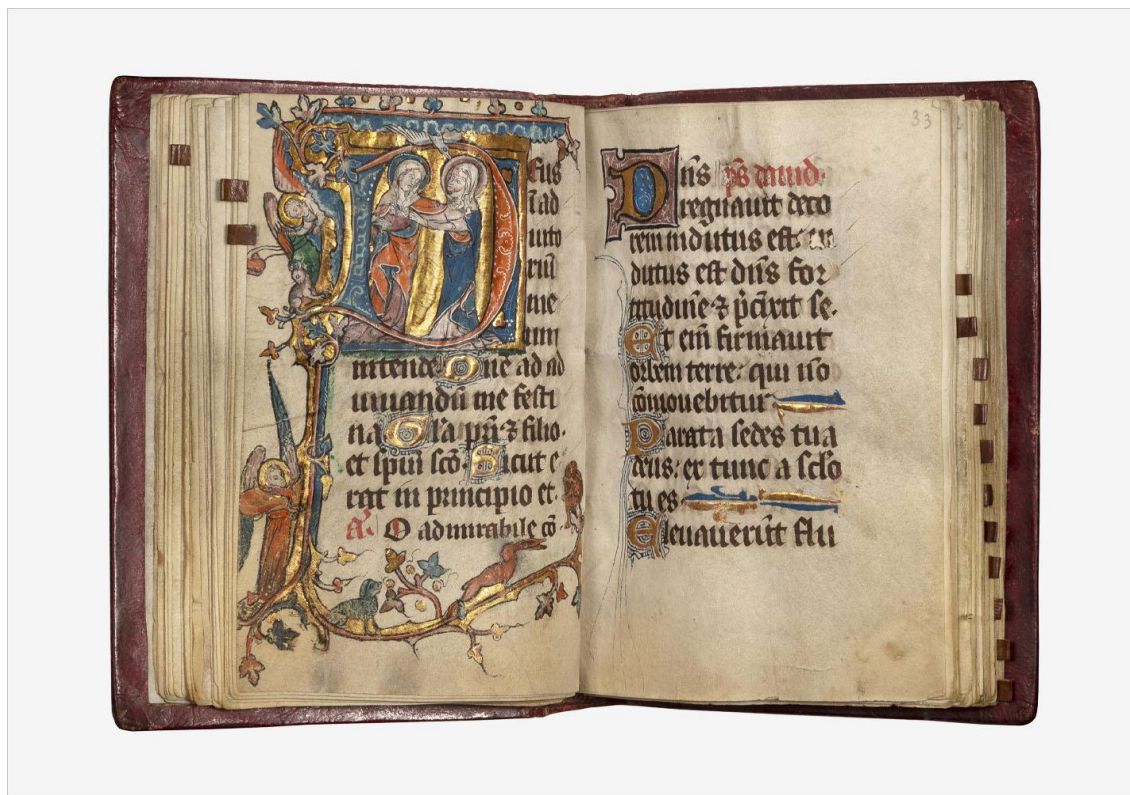 eus
in ad
iuto
riū
me
um
intende One ad ad
iuuandū me festi
na Gl'a pr̄i ⁊ filio·
et spiri scō· Sicut e
rat in principio et·
A. O admirabile cō
33
Dn̄s ps dauid·
regnauit deco
rem indutus est· in
dutus est dn̄s for
titudine· ⁊ p̄cīxit se·
Et em̄ firmauit
orbem terre· qui nō
cōmouebitur
Parata sedes tua
deus· ex tunc a sclo
tu es
Eleuauerūt flu